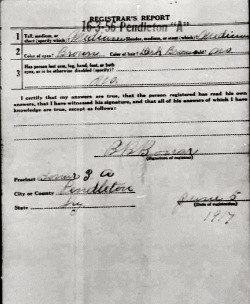 REGISTRAR'S REPORT
16-3-56 Pendleton "A"
1 Tall, medium, or short (specify which)? Medium Slender, medium, or stout (which)? Medium
2 Color of eyes? Brown Color of hair? Dark Brown Bald? No
3 Has person lost arm, leg, hand, foot, or both
eyes, or is he otherwise disabled (specify)?
No.
I certify that my answers are true, that the person registered has read his own
answers, that I have witnessed his signature, and that all of his answers of which I have
knowledge are true, except as follows:
B B Bonar
(Signature of registrar)
Precinct 3
City or County Pendleton
State Ky
June 5
(Date of registration)
1917